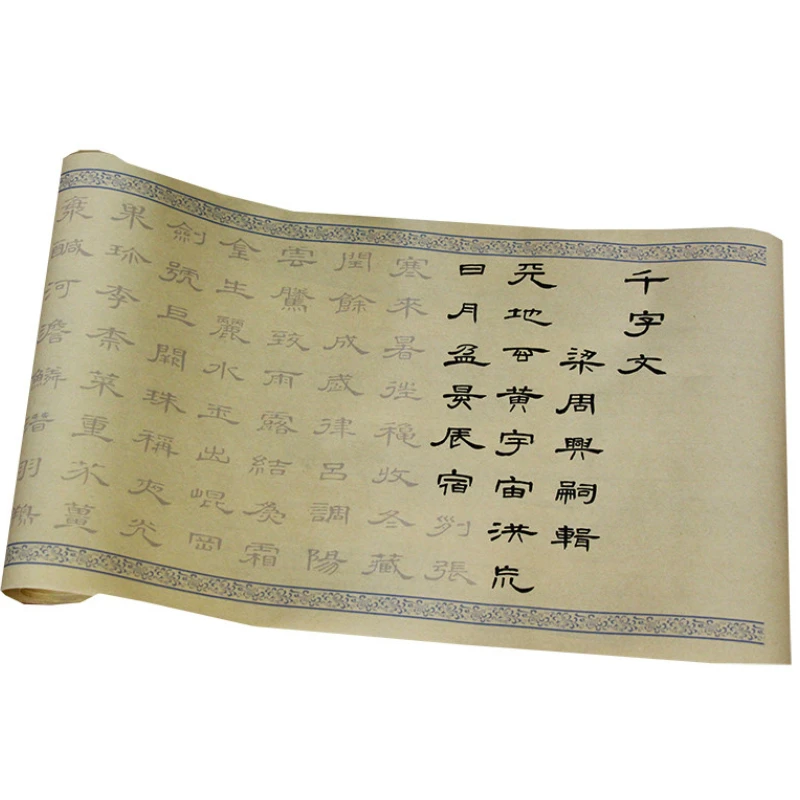 千字文
梁周興嗣輯
天地玄黄宇宙洪荒
日月盈昃辰宿列張
寒來暑往秋收冬藏
閏餘成歲律呂調陽
雲騰致雨露結為霜
金生麗水玉出崐岡
劍號巨闕珠稱夜光
果珍李柰菜重芥薑
海鹹河淡鱗潛羽翔